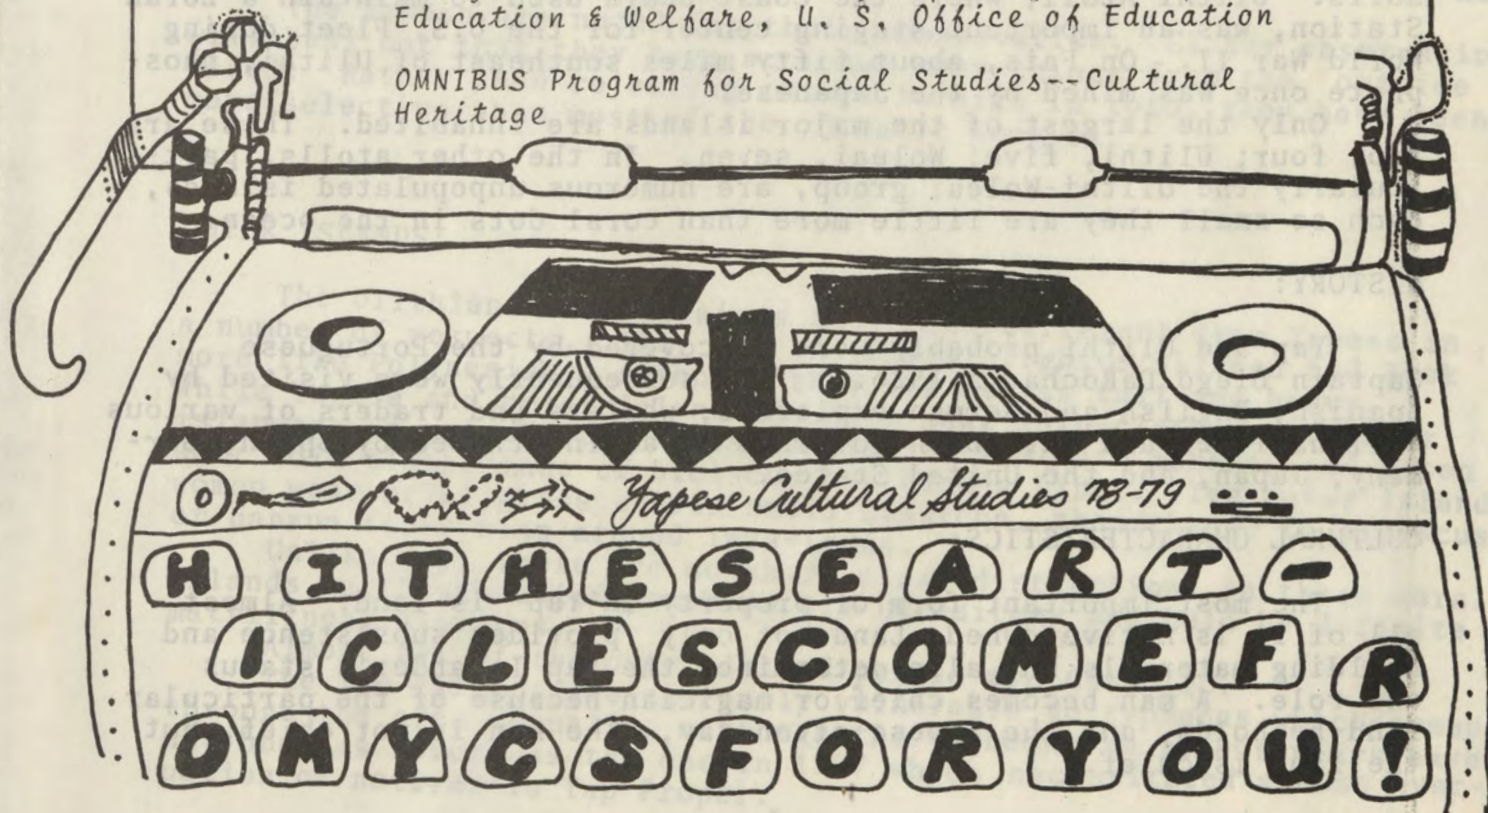 Education & Welfare, U. S. Office of Education
OMNIBUS Program for Social Studies--Cultural
Heritage
Yapese Cultural Studies 78-79
H I T H E S E A R T -
I C L E S C O M E F R
O M Y C S F O R Y O U !